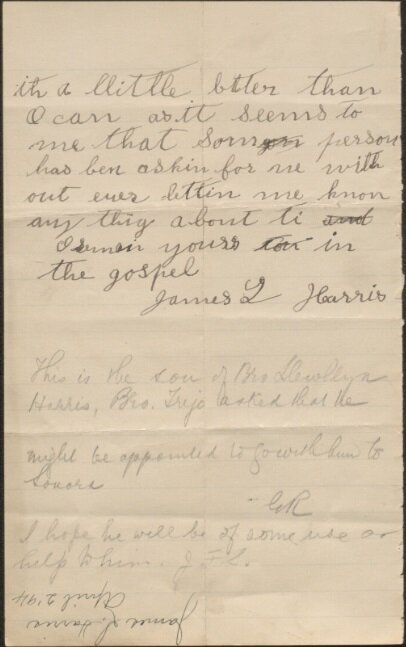 ith a llitlle btter than
I can as it seems to
me that som person
has ben askin for me with
out ever lettin me know
any thig about ti and
I remain yours in
the gospel
James L Harris
This is the son of Bro Llewllyn
Harris, Bro. Trejo asked that he
might be appointed to go with him to
Sonora
GR
I hope he will be of some use or
help to him. J. F. S.
James L. Harris
April 2 '94